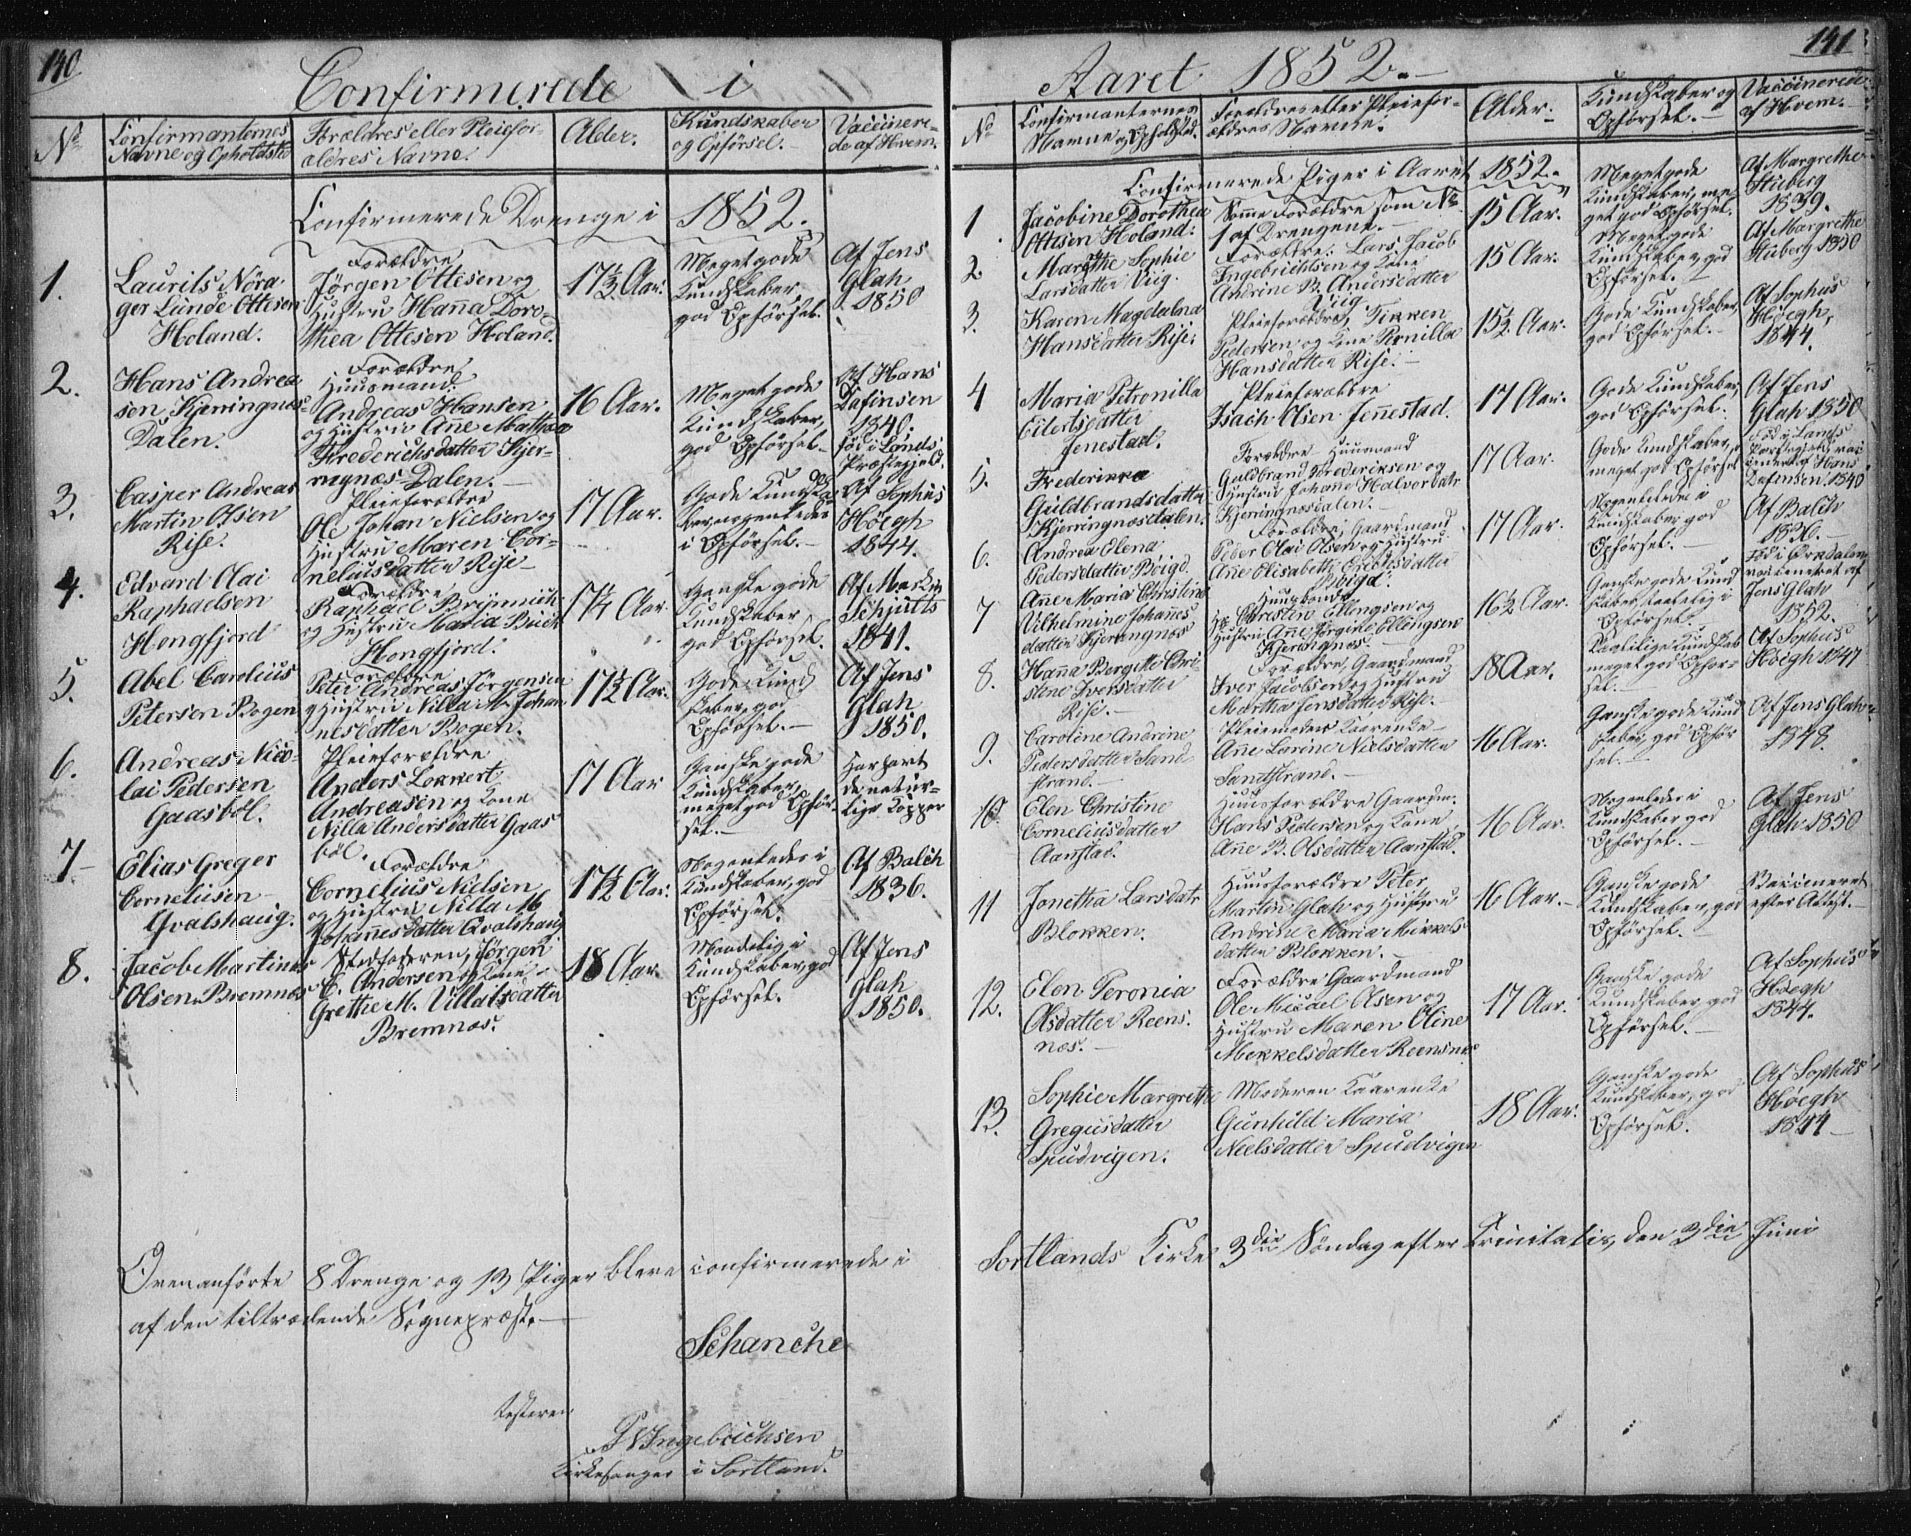 140
Confirmerede i
No
Confirmanternes
Navne og Opholdsted
Forældres eller Pleiefor-
ældres Navne.
Alder.
Kundskaber
og Opførsel.
Vaccinere-
de af Hvem.
Confirmerede Drenge i 1852.
1.
Laurits Nöra-
ger Lunde Ottesen
Holand.
Forældre
Jørgen Ottesen og
Hustru Hanna Doro-
thea Ottesen Holand.
17½ Aar.
Meget gode
Kundskaber,
god Opførsel.
Af Jens
Glah
1850
2.
Hans Andrea-
sen Kjeringnæs-
Dalen.
Forældre
Huusmand
Andreas Hansen
og Hustru Ane Mathea
Frederichsdatter Kjer-
ringnæs-Dalen.
16 Aar.
Meget gode
Kundskaber,
god Opførsel.
Af Hans
Dafinsen
1840.
fød i Lands
Præstegjeld.
3.
Casper Andreas
Martin Olsen
Rise.
Pleieforældre
Ole Johan Nielsen og
Hustru Maren Cor-
neliusdatter Rise
17 Aar.
Gode Kundska-
ber nogenledes
i Opførsel.
Af Sophus
Høegh
1844.
4.
Edvard Olai
Raphaelsen
Hongfjord
Forældre
Raphael Brynnich
og Hustru Maria Buch
Hongfjord.
17¼ Aar.
Ganske gode
Kundskaber
god Opførsel.
Af Martin
Schjutts
1841.
5.
Abel Carolius
Petersen Bogen
Forældre
Peter Andreas Jørgensen
og Hustru Nilla M. Johan-
nesdatter Bogen.
17½ Aar.
Gode Kund-
skaber, god
Opførsel.
Af Jens
Glah
1850.
6.
Andreas Nico-
lai Pedersen
Gaasböl.
Pleieforældre
Anders Lokkert
Andreasen og Kone
Nilla Andersdatter Gaas
böl.
17 Aar
Ganske gode
Kundskaber,
meget god Opfør-
sel.
Har havt
de natur-
lige Kopper
7
Elias Greger
Cornelusen
Qvalshaug.
Forældre
Cornelius Nielsen
og Hustru Nilla M.
Johannesdatter Qvalshaug
17½ Aar.
Nogenledes i
Kundskaber, god
Opførsel.
Af Balch
1836.
8.
Jacob Martinus
Olsen Bremnæs
Stedfaderen, Jörgen
C. Andersen og Kone
Grethe M. Villatsdatter
Bremnæs.
18 Aar.
Maadelig i
Kundskaber, god
Opførsel.
Af Jens
Glah
1850.
Ovenanførte 8 Drenge og 13 Piger bleve confirmerede i
af den tiltrædende Sognepræst.
Schanche
Testerer
P Ingebrichtsen
Kirkesanger i Sortland.
141
Aaret 1852.
No
Confirmanternes
Navne og Opholdsted.
Forældres eller Pleiefor-
ældres Navne.
Alder.
Kundskaber og
Opførsel.
Vaccinerede
af Hvem.
Confirmerede Piger i Aaret 1852.
1
Jacobine Dorothea
Ottesen Holand.
Samme Forældre som No
1 af Drengene.
15 Aar.
Meget gode
Kundskaber, me-
get god Opførsel.
Af Margrethe
Stuberg
1839.
2
Marethe Sophie
Larsdatter Viig.
Forældre: Lars Jacob
Ingebrichtsen og Kone
Andrine B. Andersdatter
Viig
15 Aar.
Meget gode
Kundskaber, god
Opførsel.
Af Margrethe
Stuberg 1850
3.
Karen Magdalena
Hansdatter Rise.
Pleieforældre, Tikken
Pedersen og Kone Pernilla
Hansdatter Rise.
15½ Aar.
Gode Kundskaber,
god Opførsel.
Af Sophus
Høegh,
1844.
4
Maria Petronilla
Eilertsdatter
Jenestad.
Pleieforældre
Isach Olsen Jennestad.
17 Aar.
Gode Kundskaber,
god Opførsel.
Af Jens
Glah 1850
5.
Frederikka
Guldbrandsdatter
Kjerringnæsdalen.
Forældre Huusmand
Guldbrand Frederiksen og
Hustru Johanne Halvorsdatr
Kjerringnæsdalen.
17 Aar.
Gode Kundskaber,
meget god Opførsel
fød i Lands
Hans
Dafinsen. 1840
6.
Andrea Elena
Pedersdatter Bøigd.
Forældre, Gaardmand
Peder Olai Olsen og Hustru
Ane Elisabeth Erichsdatter
Bøigd.
17 Aar.
Nogenledes i
Kundskaber god
Opførsel.
Af Balch
1836.
7
Ane Maria Christine
Vilhelmine Johannes
datter Kjerringnæs
Huusbonde
Hr. Christen Ellingsen og
Hustru Ane Jørgine Ellingsen
Kjeringnæs.
16½ Aar.
Ganske gode Kund-
skaber
Opførsel.
Fød i Orkdalen
vaccineret af
Jens Glah
1852.
8.
Hanna Bergitte Chri-
stine Iversdatter
Rise.
Forældre, Gaardmand
Iver Jacobsen og Hustru
Martha Jensdatter Rise.
18 Aar.
Kundskab
meget god Opfør-
sel.
Af Sophus
Høegh 1847
9.
Caroline Andrine
Pedersdatter Sand
strand.
Pleiemoder Kaarenke
Ane Larine Nielsdatter
Sandstrand.
16 Aar.
Ganske gode Kund
skaber god Opfør
sel.
Af Jens Glah
1848.
10.
Elen Christine
Corneliusdatter
Aanstad.
Huusforældre Gaardm.
Hans Pedersen og Kone
Ane B. Olsdatter Aanstad.
16 Aar.
Nogenledes i
Kundskaber god
Opførsel.
Af Jens
Glah 1850
11
Jonetha Larsdatr
Blokken.
Huusforældre Peter
Martin Glah og Hustru
Andrine Maria Mikkels-
datter Blokken.
16 Aar.
Ganske gode
Kundskaber, god
Opførsel.
Vaccineret
efter Attest.
12.
Elen Peronia
Olsdatter Reens-
næs.
Forældre Gaardmand
Ole Michel Olsen og
Hustru Maren Oline
Mekkelsdatter Reensnæs
17 Aar.
Ganske gode
Kundskaber, god
Opførsel.
Af Sophus
Høegh
1844.
13.
Sophie Margrethe
Gregusdatter
Spudvigen.
Moderen Kaarenke
Gunhild Maria
Neelsdatter Spudvigen
18 Aar.
Ganske gode
Kundskaber, god
Opførsel.
Af Sophus
Høegh
1844
Sortlands Kirke 3die Söndag efter Trinitatis, den 3die Juni